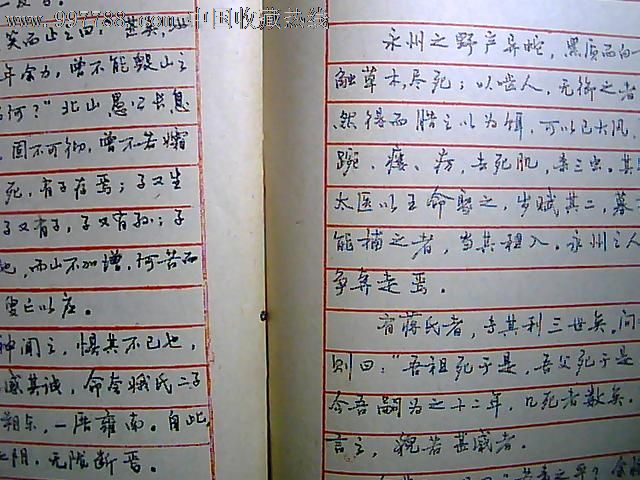 www.997788.com 中国收藏热线
笑而止之曰：甚矣，汝
年余力，曾不能毁山之
石何？”北山愚公长息
，固不可彻，曾不若孀
死，有子存焉；子又生
子又有子，子又有孙；子
也，而山不加增，何苦而
叟亡以应。
神闻之，惧其不已也，
感其诚，命夸娥氏二子
朔东，一厝雍南。自此，
之阴，无陇断焉。
永州之野产异蛇，黑质而白
触草木，尽死；以啮人，无御之者
然得而腊之以为饵，可以已大风、
踠、瘘、疠，去死肌，杀三虫。其
太医以王命聚之，岁赋其二，募
能捕之者，当其租入。永州之人
争奔走焉。
有蒋氏者，专其利三世矣。问
则曰：“吾祖死于是，吾父死于是
今吾嗣为之十二年，几死者数矣。
言之，貌若甚戚者。